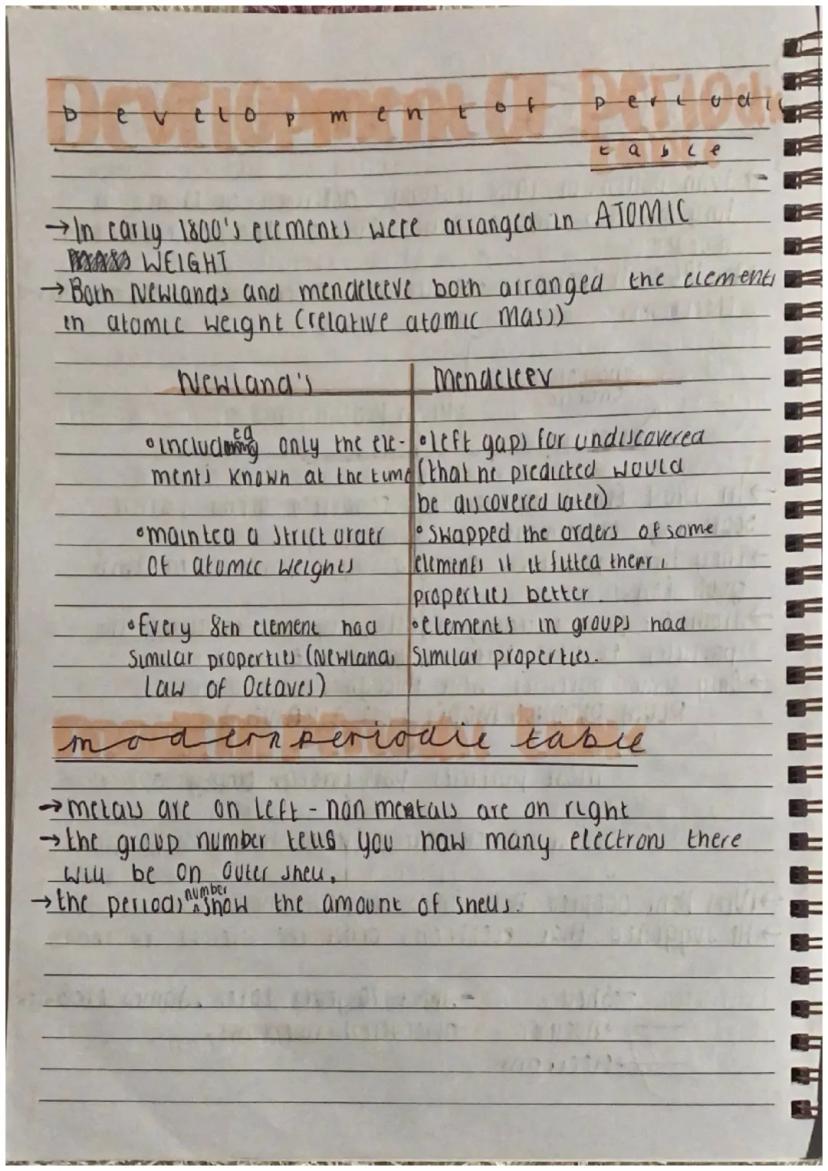 Development of Periodic
table
→In early 1800's elements were arranged in ATOMIC
WEIGHT
→Both Newlands and mendeleeve both arranged the elements
in atomic weight (relative atomic mass)
Newland's
Mendeleev
•included only the ele-
ments known at the time
•mainted a strict order
of atomic weights
•Every 8th element had
similar properties (Newlands
Law of Octaves)
•left gaps for undiscovered
(that he predicted would
be discovered later)
•swapped the orders of some
elements if it fitted their
properties better.
•elements in groups had
similar properties.
modern periodic table
→metals are on left - non metals are on right
→the group number tells you how many electrons there
will be on outer shell.
→the periods number show the amount of shells.